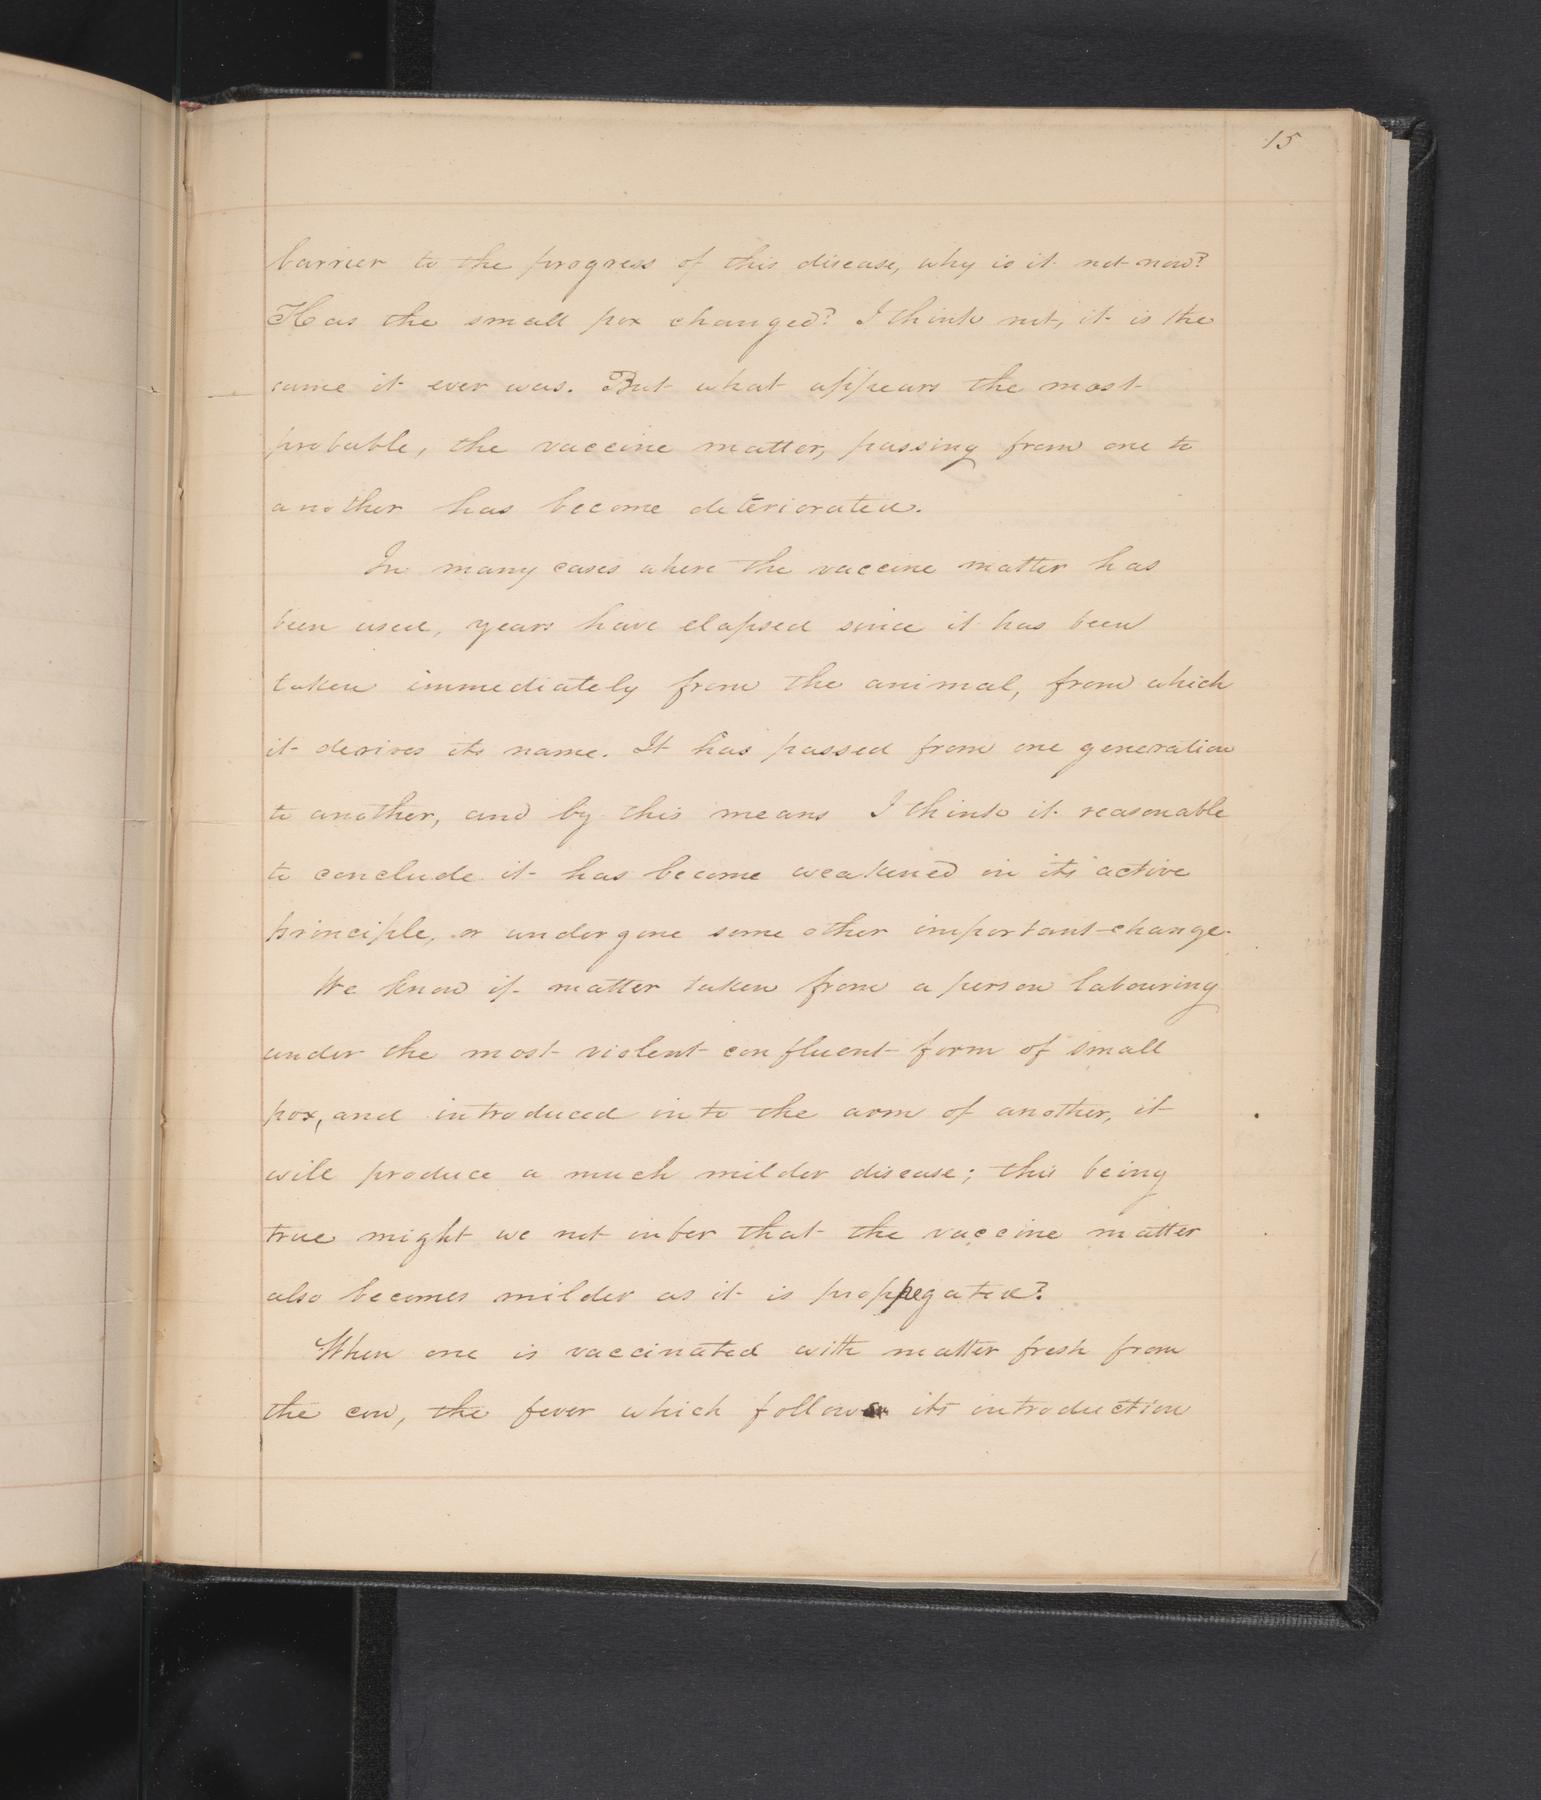 15
barrier to the progress of this disease, why is it not now?
Has the small pox changed? I think not, it is the
same it ever was. But what appears the most
probable, the vaccine matter, passing from one to
another has become deteriorated.
In many cases where the vaccine matter has
been used, years have elapsed since it has been
taken immediately from the animal, from which
it derives its name. It has passed from one generation
to another, and by this means I think it reasonable
to conclude it has become weakened in its active
principle, or undergone some other important change.
We know if matter taken from a person labouring
under the most violent confluent form of small
pox, and introduced into the arm of another, it
will produce a much milder disease; this being
true might we not infer that the vaccine matter
also becomes milder as it is proppegated?
When one is vaccinated with matter fresh from
the cow, the fever which follows its introduction